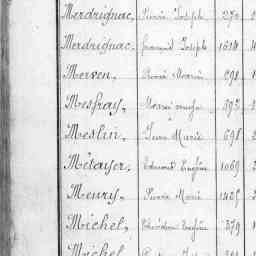 Merdrignac, Pierre Joseph 270
Merdrignac, François Joseph 1614
Merven, René Marie 698
Mesfray,
Meslin, Jean Marie 698
Métayer, Edmond Eugène 1069
Meury, Pierre Marie 1425
Michel, Théodore Eugène 379
Michel,